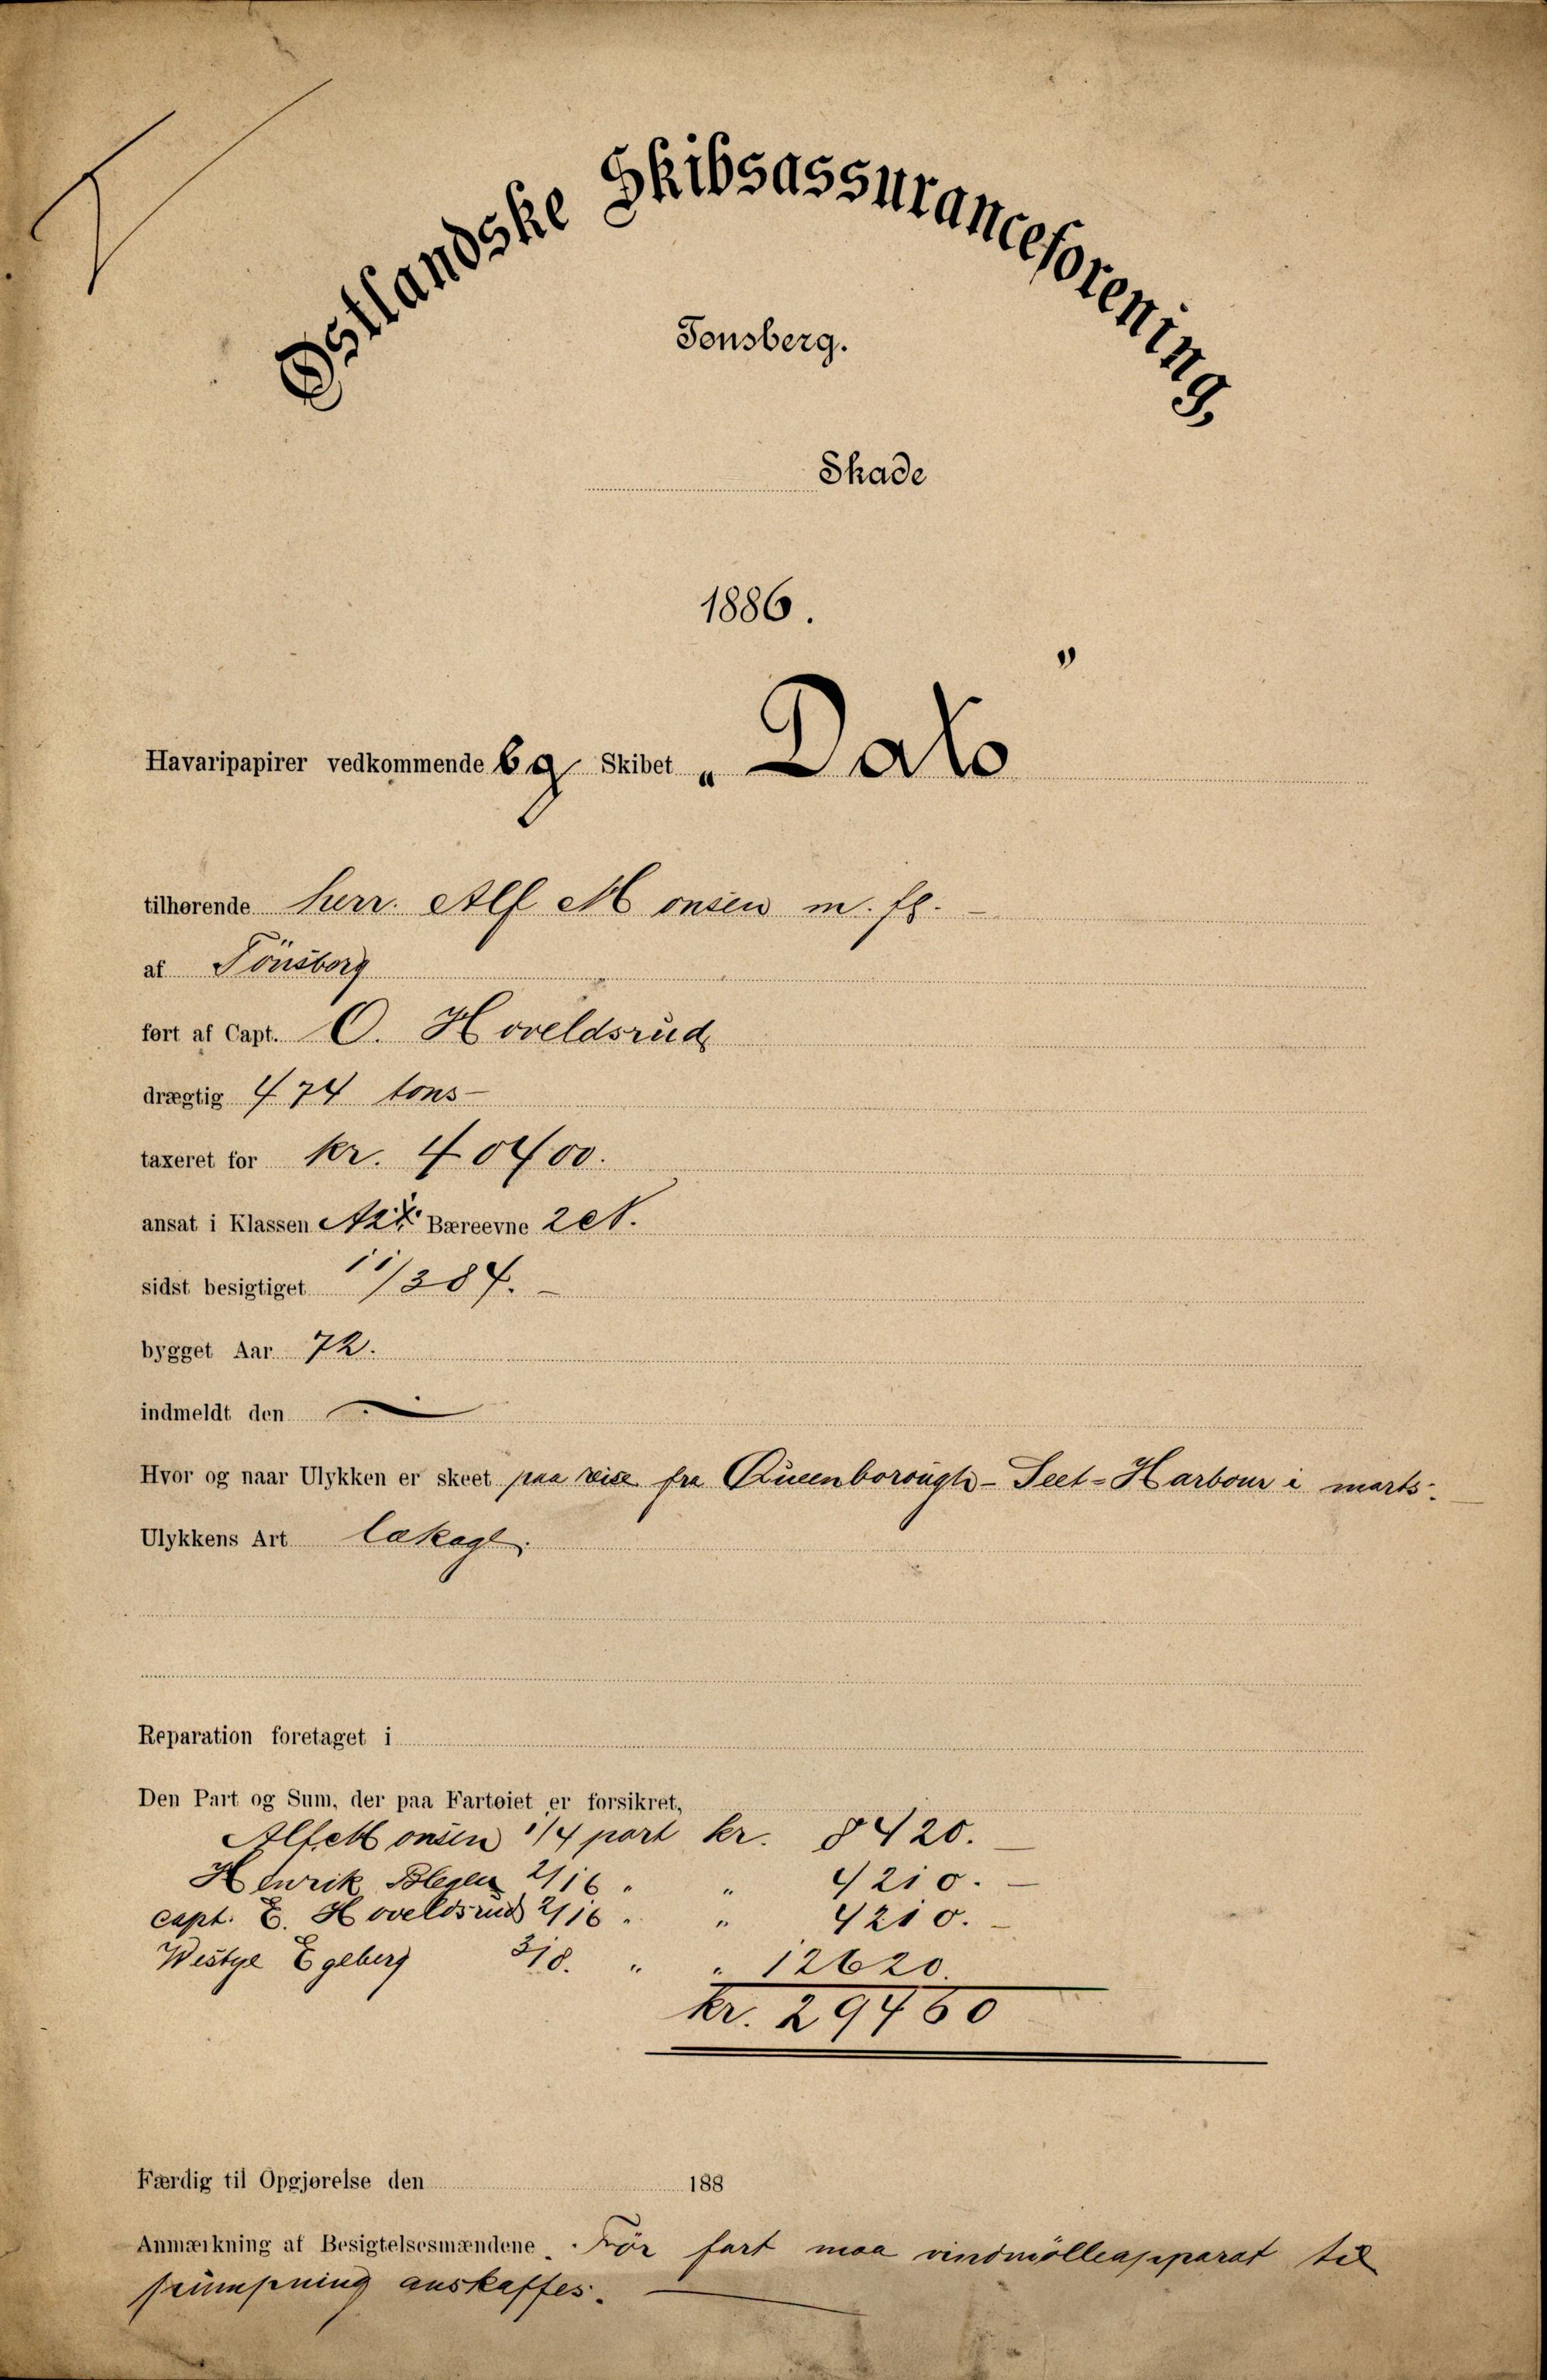 Østlandske Skibsassuranceforening,
Tønsberg.
Skade
1886.
Havaripapirer vedkommende Bg Skibet „Dato"
tilhørende herr. Alf Monsen m. fl. –
af Tönsberg
ført af Capt. O. Hoveldsrud
drægtig 474 tons –
taxeret for kr. 40400.
ansat i Klassen Bæreevne
sidst besigtiget 11/3 84. –
bygget Aar 72.
indmeldt den —
Hvor og naar Ulykken er skeet paa reise fra Queenborough - Seet - Harbour i marts. –
Ulykkens Art lækage.
Reparation foretaget i
Den Part og Sum, der paa Fartøiet er forsikret,
Alf Monsen 1/4 part kr. 8420. –
Henrik 2/16 " " 4210. –
capt. E. Hoveldsrud 2/16 " " 4210. –
Westye Egeberg 3/8. " " 12620.
kr. 29460
Færdig til Opgjørelse den 188
Anmærkning af Besigtelsesmændene. För fart maa vindmölleapparat til
pumpning anskaffes. —